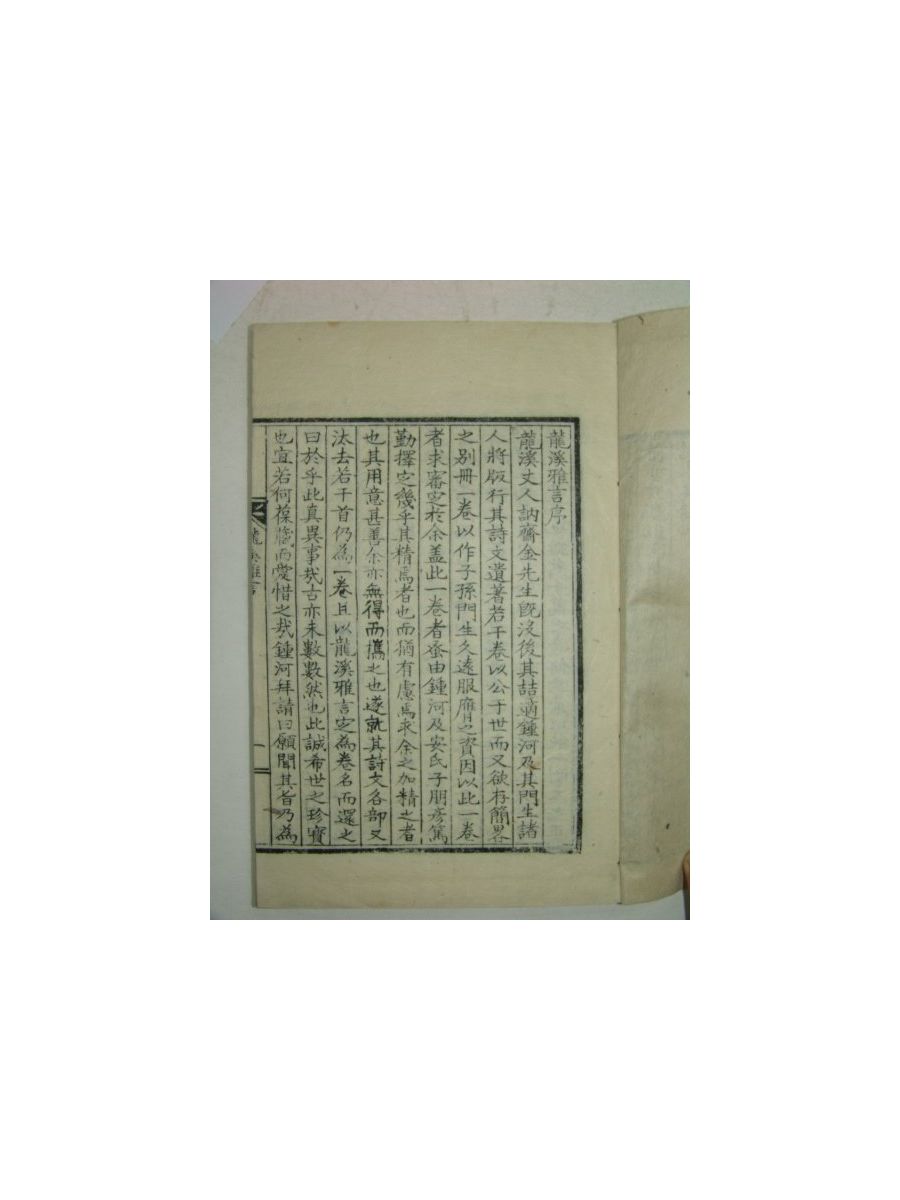 龍溪雅言序
龍溪丈人訥齋金先生旣沒後其喆適鍾河及其門生諸
人將版行其詩文遺著若干卷以公于世而又欲存簡畧
之別冊一卷以作子孫門生久遠服膺之資因以此一卷
者求審定於余盖此一卷者蚤由鍾河及安氏子朋彦篤
勤擇定幾乎其精焉者也而猶有慮焉求余之加精之者
也其用意甚善余亦無得而攜之也遂就其詩文各部又
汰去若干首仍為一卷且以龍溪雅言定為卷名而還之
曰於乎此真異事㢤古亦未數數然也此誠希世之珍寶
也宜若何葆藏而愛惜之㢤鍾河拜請曰願聞其旨乃為
龍溪雅言